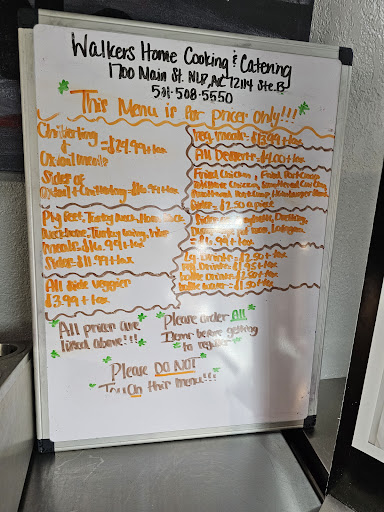 Walkers Home Cooking & Catering
1700 Main St. NLR, AR 72114 Ste. B
501-508-5550
This Menu is for prices only!!!
Chitterling
&
Oxtail meals
= $24.99 + tax
Sides of
Oxtail & Chitterling = $16.99 + tax
Pig Feet, Turkey Necks,
Neckbone, Turkey Wing,
meals = $16.99 + tax
Sides = $11.99 + tax
All side veggies
$3.99 + tax
reg. meals = $13.99 + tax
All Desserts = $4.00 + tax
Fried Chicken, Fried Pork Chops
Sides = $2.50 a piece
Sides of Dressing,
= $6.99 + tax
Lg. Drinks = $2.50 + tax
reg. Drinks = $1.95 + tax
bottle drinks = $2.50 + tax
bottle water = $1.50 + tax
All prices are
listed above!!!
Please order All
Items before getting
to register
Please DO NOT
On this menu!!!